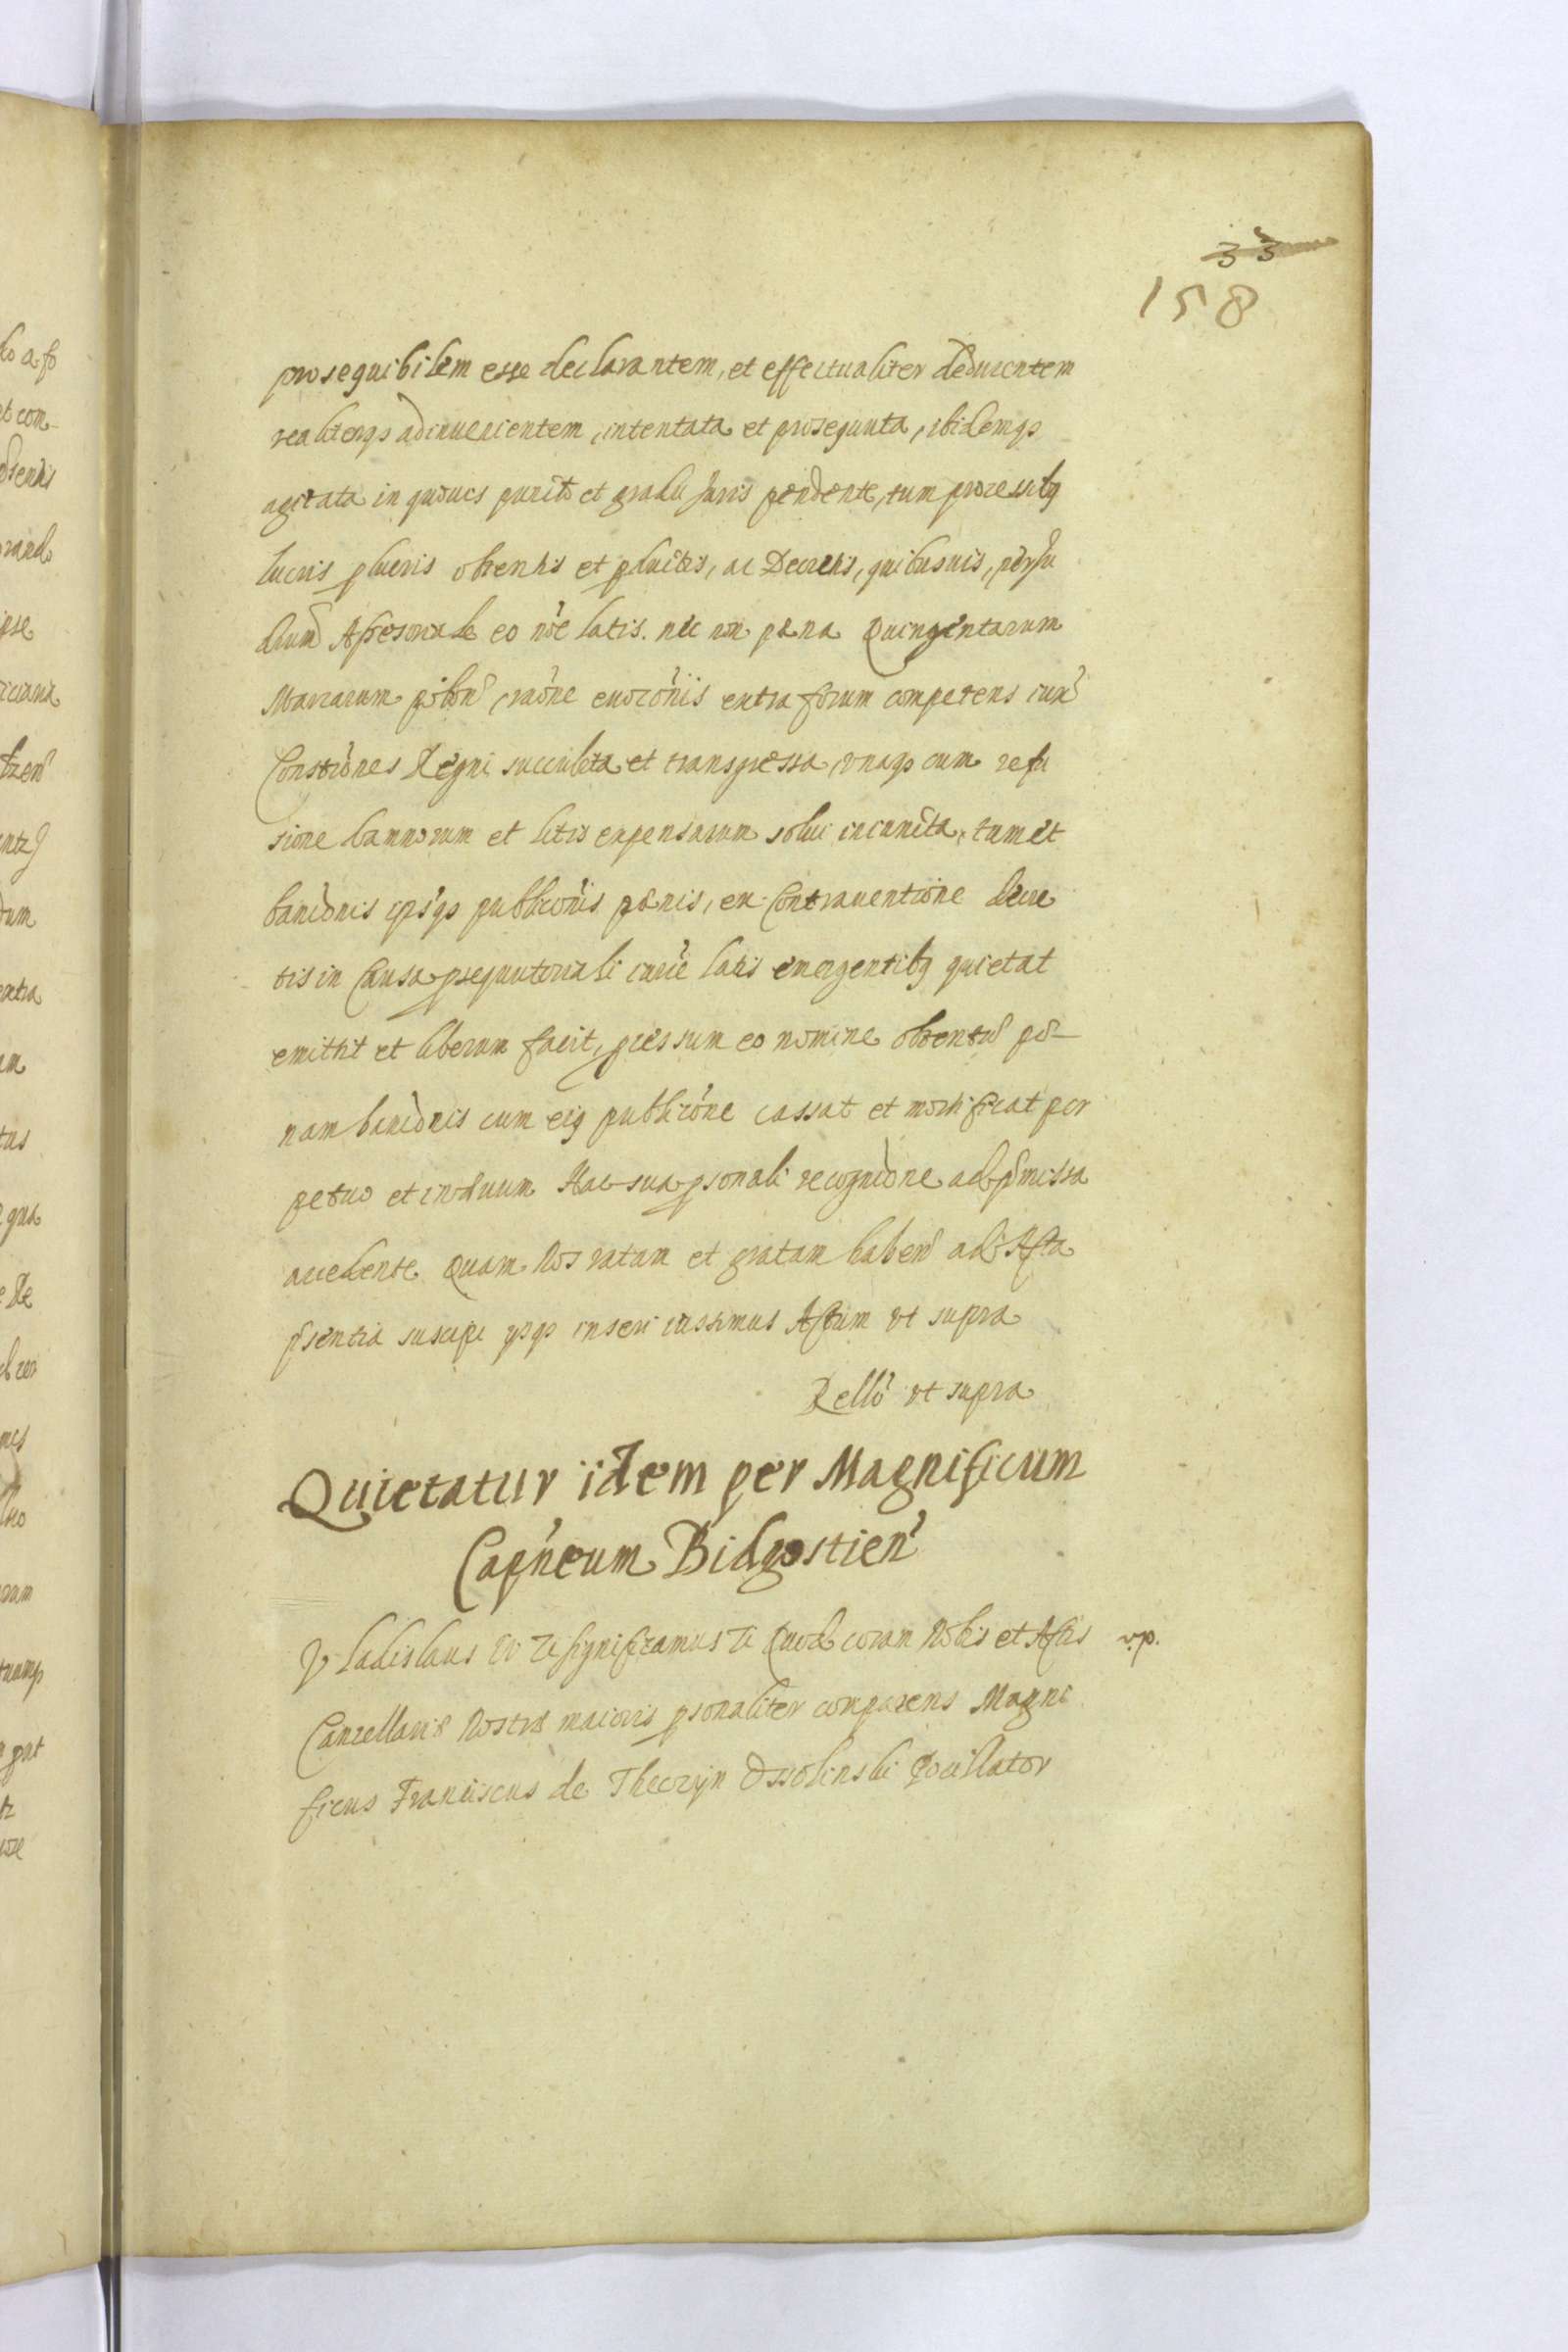 33
158
prosequibilem esse declarantem, et effectualiter deducentem
realiterq adinvenientem, intentata et prosequuta, ibidemq
agitata in quovis puncto et gradu Juris pendente, tum processibq
lucris obtentis et ac Decretis, quibusvis, per Ju
dicium Assesoriale eo noe latis. nec non paena Quingentarum
Marcarum raone evoconis extra forum competens
Constiones Regni succubita et transgressa, unaq cum refu
sione damnorum et litis expensarum solui tum et
banionis ipsiq publiconis paenis, ex Contraventione Decre
tis in Causa psequutoriali latis emergentibq quietat
emittit et liberum facit, eo nomine obtentu pae-
nam banionis cum eiq publicone cassat et mortificat per
petuo et in aevum Hac sua psonali recognicione ad pmissa
accedente Quam Nos ratam et gratam haben ad Acta
psentia suscipi ysq inseri iussimus Actum ut supra
Rello ut supra
Quietatur idem per Magnificum
Capneum Bidgostien
Vladislaus IV Te significamus Te Quod coram Nobis et Actis v.p.
Cancellariae Nostrae maioris psonaliter comparens Magni
ficus Franciscus de Theczyn Ossolinski Pocillator